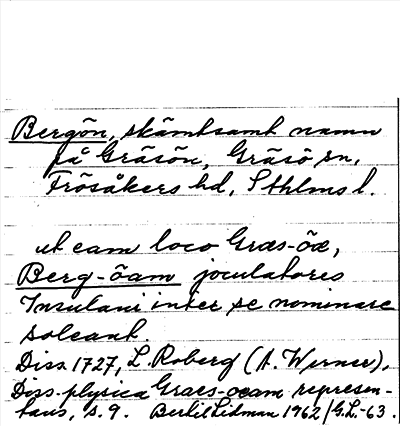 Bergön, skämtsamt namn
på Gräsön, Gräsö sn,
Frösåkers hd, Sthlms l.
ut eam loco Græs-öæ,
Berg-öam joculatores
Insulani inter se nominare
soleant.
Diss. 1727, L. Roberg (A. Werner),
Diss. physica Græs-oeam represen-
tans, s. 9. Bertil Lidman 1962/G.L.-63.